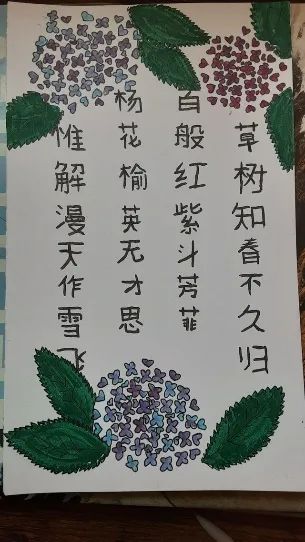 草树知春不久归
百般红紫斗芳菲
杨花榆英无才思
惟解漫天作雪飞